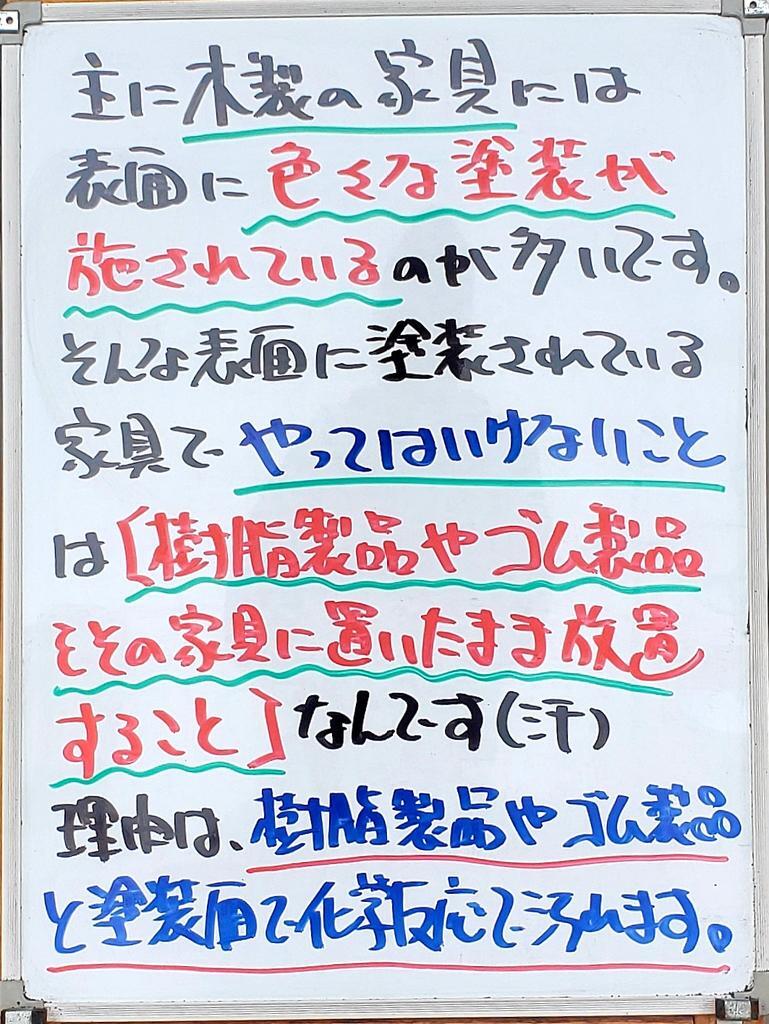 主に木製の家具には
表面に色々な塗装が
施されているのが多いです。
そんな表面に塗装されている
家具でやってはいけないこと
は[樹脂製品やゴム製品
をその家具に置いたまま放置
すること]なんです(汗)
理由は、樹脂製品やゴム製品
と塗装面で化学反応で汚れます。